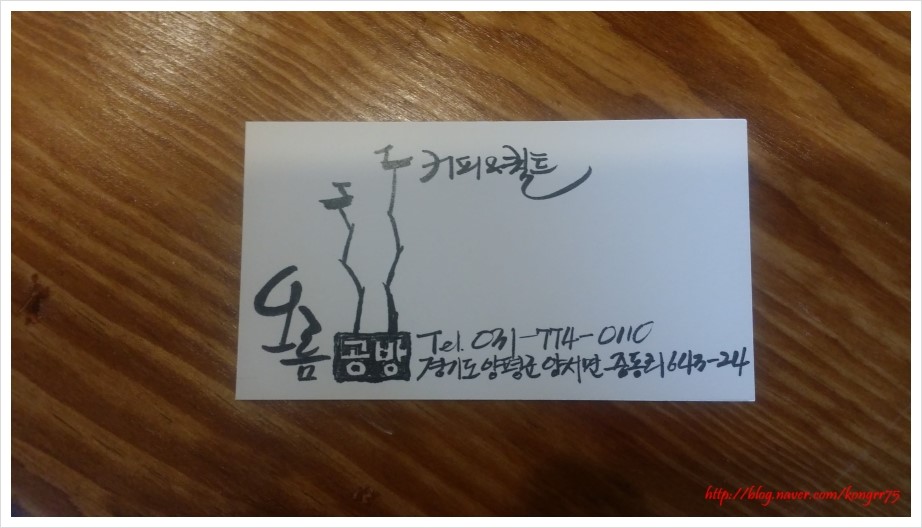 커피와퀼트
오름
공방
Tel. 031-774-0110
경기도 양평군 양서면 증동리 643-24
http://blog.naver.com/kongrr75